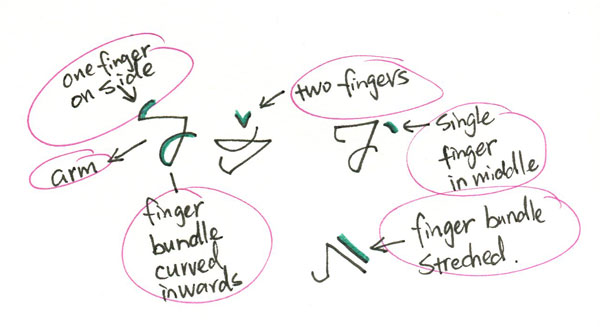 one finger
on side
two fingers
single
finger
in middle
arm
finger
bundle
curved
inwards
finger bundle
streched.